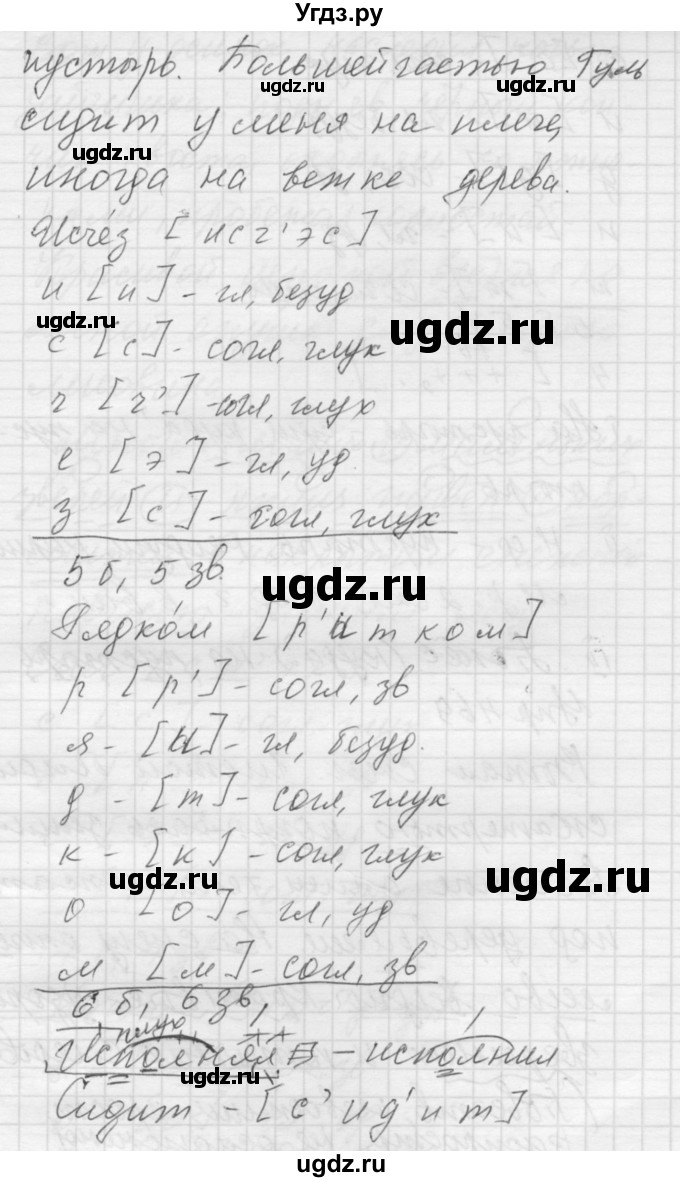 Угдз.ру
пустырь. Большей частью Гуль
ugdz.ru ugdz.ru
сидит у меня на плече,
ugdz.ru
иногда на ветке дерева.
Исчез [исч'эс]
и [и] - гл, безуд
ugdz.ru ugdz.ru
с [с] - согл, глук
ч [ч'] - согл, глух
е [э] - гл, уд
з [с] - согл, глух
5 б, 5 зв.
ugdz.ru
Рядком [р'итком]
р [р'] - согл, зв
я - [и] - гл, безуд.
д - [т] - согл, глук
к - [к] - согл, глук
ugdz.ru ugdz.ru
о [о] - гл, уд
м [м] - согл, зв
6 б, 6 зв,
Исполнял - исполнил
ugdz.ru ugdz.ru
Сидит - [с'ид'ит]
ugdz.ru